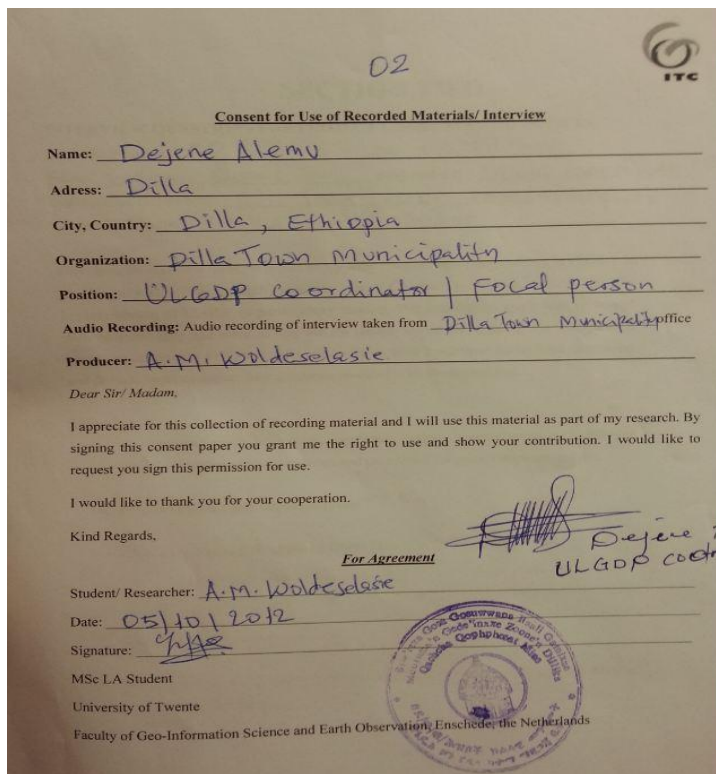 02
ITC
Consent for Use of Recorded Materials/ Interview
Name: Dejene Alemu
Adress: Dilla
City, Country: Dilla, Ethiopia
Organization: Dilla Town Municipality
Position: ULGDP coordinator / Focal person
Audio Recording: Audio recording of interview taken from Dilla Town Municipality office
Producer: A.M. Woldeselasie
Dear Sir/ Madam,
I appreciate for this collection of recording material and I will use this material as part of my research. By
signing this consent paper you grant me the right to use and show your contribution. I would like to
request you sign this permission for use.
I would like to thank you for your cooperation.
Kind Regards,
Dejene
ULGDP
For Agreement
Student/ Researcher: A.M. Woldeselasie
Date: 05/10/2012
Signature:
MSc LA Student
University of Twente
Faculty of Geo-Information Science and Earth Observation, Enschede, the Netherlands